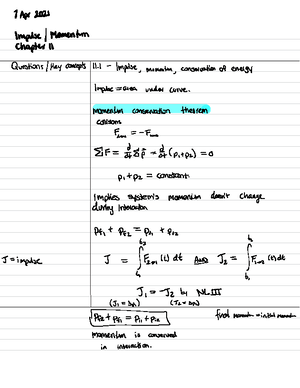 7 Apr 2021
Impulse / Momentum
Chapter 11
Questions / Key concepts
11.1 - Impulse, momentum, conservation of energy
Impulse = area under curve.
Momentum conservation theorem
collisions
F₂→₁ = -F₁→₂
ΣF = d/dt Σp̄ → d/dt (p₁+p₂) = 0
p₁ + p₂ = constant
Implies system's momentum doesn't change
during interaction
pf₁ + pf₂ = pi₁ + pi₂
J = impulse
J = ∫ F₂→₁ (t) dt AND J₂ = ∫ F₁→₂ (t) dt
J₁ = -J₂ by NLIII
(J₁ = Δp₁) (J₂ = Δp₂)
pf₂ + pf₁ = pi₁ + pi₂ final momentum = initial momentum
Momentum is conserved
in interaction.